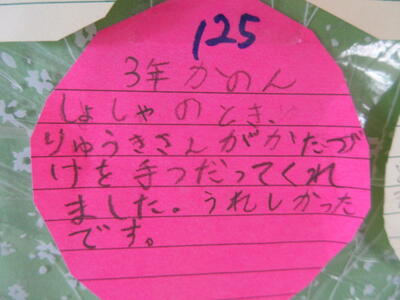 125
3年かのん
しょしゃのとき、
りゅうきさんがかたづ
けを手つだってくれ
ました。うれしかった
です。